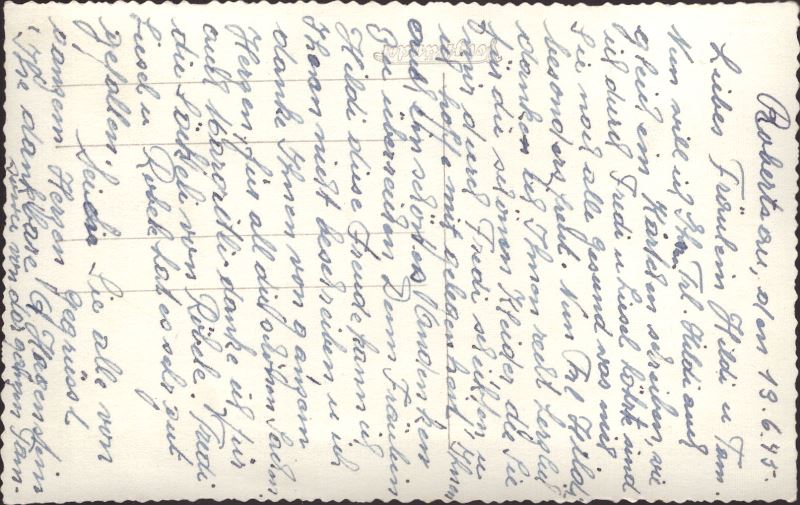 Robertsau, den 13.6.45.
Liebes Fräulein Hildi u Fam.
Nun will ich Ihnen Frl. Hildi auch
gleich ein Kärtchen schreiben, wie
ich durch Fredi u Lisel hörte sind
Sie noch alle gesund was mich
besonders freut. Nun Frl Hildi
danken ich Ihnen recht herzlich
für die schönen Kleider die Sie
mir durch Fredi schickten u
hoffe mit gelegenheit Ihnen
auch ein schönes Andenken
zu überreichen Denn Fräulein
Hildi diese Freude kann ich
Ihnen nicht beschreiben u ich
danke Ihnen von ganzem
Herzen für all die schönen Sachen
auch danke ich für
die von Röbele. Fredi
Lisel u Röbele hat es sehr gut
gefallen. Seien Sie alle von
ganzem Herzen gegrüsst
Ihre dankbare